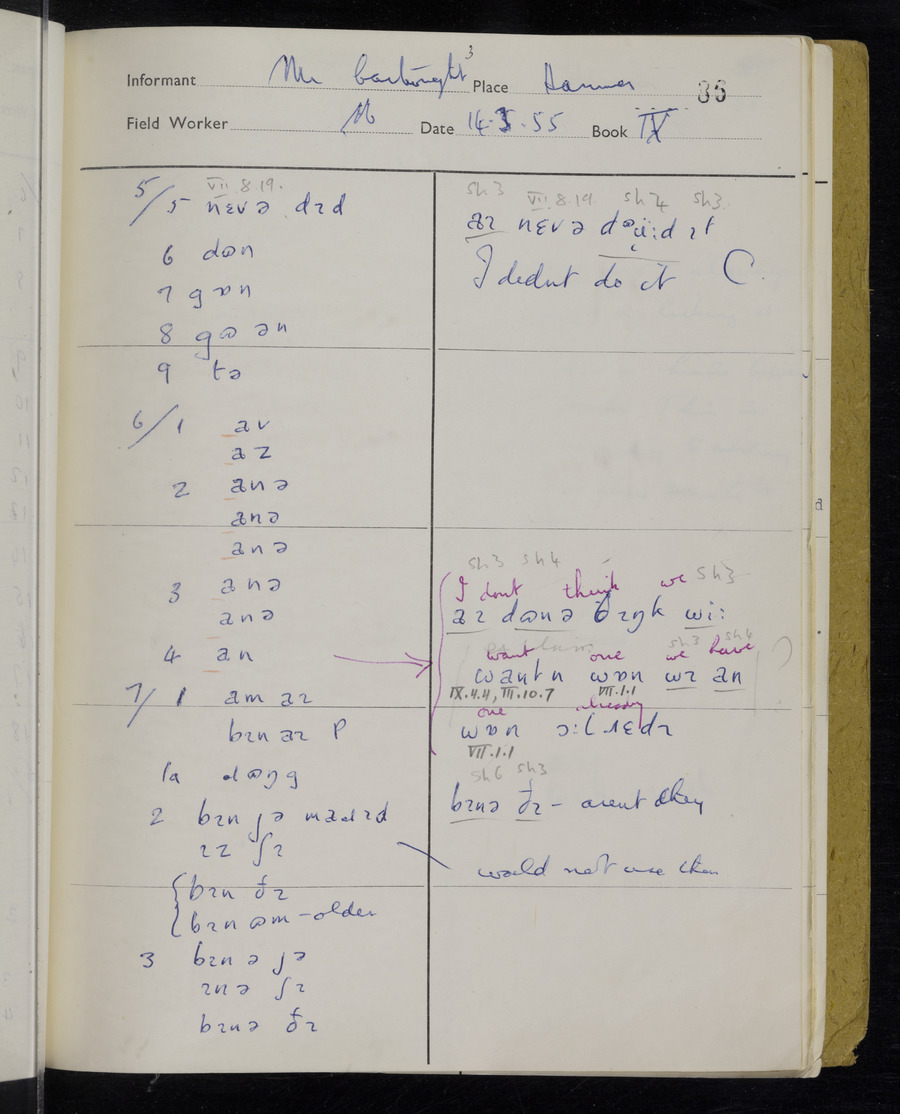 3
Informant Mr Place Hanmer 36
Field Worker Date 14.3.55 Book IX
VII.8.19.
5/5 nɛvə dɪd
6 dɷn
7 gɒn
8 gɷ ən
9 tə
6/1 av
az
2 anə
anə
anə
3 anə
anə
4 an
7/1 am aɪ
bɪn aɪ P
1a dɷŋg
2 bɪn ʃə maɹɪd
ɪz ʃɪ
bɪn ðɪ
bɪn ɷm - older
3 bɪn ə ʃə
ɪnə ʃɪ
bɪnə ðɪ
sh3 VII.8.19 sh4 sh3
aɪ nɛvə dɪt
I didnt do it C.
sh3 sh4
I dont think we sh3
aɪ dɷnə ðɪŋk wi:
sh3 sh4
want one we have
wantn wɒn wɪ an
IX.4.4, III.10.7 VII.1.1
one already
wɒn ɔ:lɹɛdɪ
VII.1.1
sh6 sh3
bɪnə ðɪ - arent they
would not use then